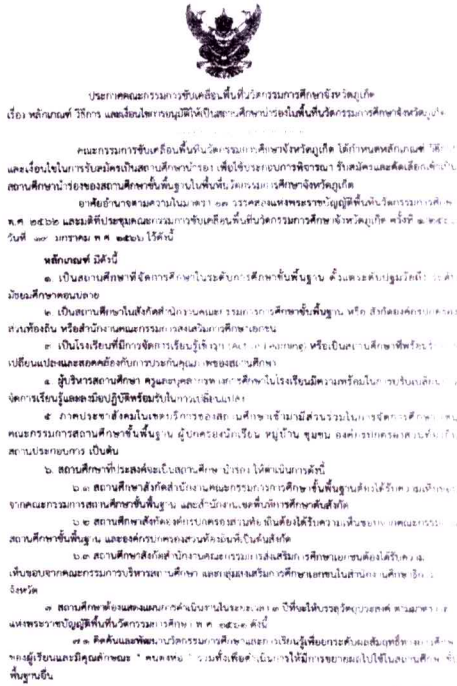 ประกาศคณะกรรมการขับเคลื่อนพื้นที่นวัตกรรมการศึกษาจังหวัดภูเก็ต
เรื่อง หลักเกณฑ์ วิธีการ และเงื่อนไขการอนุมัติให้เป็นสถานศึกษานำร่องในพื้นที่นวัตกรรมการศึกษาจังหวัดภูเก็ต
คณะกรรมการขับเคลื่อนพื้นที่นวัตกรรมการศึกษาจังหวัดภูเก็ต ได้กำหนดหลักเกณฑ์ วิธีการ
และเงื่อนไขในการรับสมัครเป็นสถานศึกษานำร่อง เพื่อใช้ประกอบการพิจารณา รับสมัครและคัดเลือก
สถานศึกษานำร่องของสถานศึกษาขั้นพื้นฐานในพื้นที่นวัตกรรมการศึกษาจังหวัดภูเก็ต
อาศัยอำนาจตามความในมาตรา วรรคสองแห่งพระราชบัญญัติพื้นที่นวัตกรรมการศึกษา
พ.ศ. ๒๕๖๒ และมติที่ประชุมคณะกรรมการขับเคลื่อนพื้นที่นวัตกรรมการศึกษาจังหวัดภูเก็ต ครั้งที่
วันที่ มกราคม พ.ศ. ๒๕๖๖ ไว้ดังนี้
หลักเกณฑ์ มีดังนี้
๑. เป็นสถานศึกษาที่จัดการศึกษาในระดับการศึกษาขั้นพื้นฐาน ตั้งแต่ระดับปฐมวัยถึงระดับ
มัธยมศึกษาตอนปลาย
๒. เป็นสถานศึกษาในสังกัดสำนักงานคณะกรรมการการศึกษาขั้นพื้นฐาน หรือ สังกัดองค์กรปกครอง
ส่วนท้องถิ่น หรือสำนักงานคณะกรรมการส่งเสริมการศึกษาเอกชน
๓. เป็นโรงเรียนที่มีการจัดการเรียนรู้เชิงรุก (Active Learning) หรือเป็นสถานศึกษาที่พร้อม
เปลี่ยนแปลงและสอดคล้องกับการประกันคุณภาพของสถานศึกษา
๔. ผู้บริหารสถานศึกษา ครูและบุคลากรทางการศึกษาในโรงเรียนมีความพร้อมในการปรับเปลี่ยน
จัดการเรียนรู้และลงมือปฏิบัติพร้อมรับในการเปลี่ยนแปลง
๕. ภาคประชาสังคมในเขตบริการของสถานศึกษาเข้ามามีส่วนร่วมในการจัดการศึกษา
คณะกรรมการสถานศึกษาขั้นพื้นฐาน ผู้ปกครองนักเรียน หมู่บ้าน ชุมชน องค์กรปกครองส่วนท้องถิ่น
สถานประกอบการ เป็นต้น
๖. สถานศึกษาที่ประสงค์จะเป็นสถานศึกษานำร่อง ให้ดำเนินการดังนี้
๖.๑ สถานศึกษาสังกัดสำนักงานคณะกรรมการการศึกษาขั้นพื้นฐานต้องได้รับความเห็นชอบ
จากคณะกรรมการสถานศึกษาขั้นพื้นฐาน และสำนักงานเขตพื้นที่การศึกษาต้นสังกัด
๖.๒ สถานศึกษาสังกัดองค์กรปกครองส่วนท้องถิ่นต้องได้รับความเห็นชอบจากคณะกรรมการ
สถานศึกษาขั้นพื้นฐาน และองค์กรปกครองส่วนท้องถิ่นที่เป็นต้นสังกัด
๖.๓ สถานศึกษาสังกัดสำนักงานคณะกรรมการส่งเสริมการศึกษาเอกชนต้องได้รับความ
เห็นชอบจากคณะกรรมการบริหารสถานศึกษา และกลุ่มส่งเสริมการศึกษาเอกชนในสำนักงานศึกษาธิการ
จังหวัด
๗. สถานศึกษาต้องแสดงแผนการดำเนินงานในระยะเวลา ๓ ปีที่จะให้บรรลุวัตถุประสงค์ ตามมาตรา
แห่งพระราชบัญญัติพื้นที่นวัตกรรมการศึกษา พ.ศ. ๒๕๖๒ ดังนี้
๗.๑ คิดค้นและพัฒนานวัตกรรมการศึกษาและการเรียนรู้เพื่อยกระดับผลสัมฤทธิ์ทางการศึกษา
ของผู้เรียนและมีคุณลักษณะ รวมทั้งเพื่อดำเนินการให้มีการขยายผลไปใช้ในสถานศึกษาขั้น
พื้นฐานอื่น